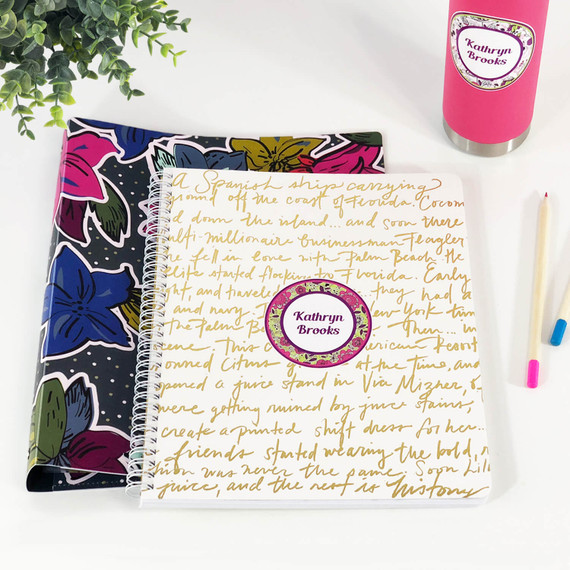 Kathryn
Brooks
A Spanish ship carrying
ound off the coast of Florida Coconu
d down the island... and soon there
ulti-millionaire businessman Flagler
re fell in love with Palm Beach. the
elite started flocking to Florida. Early
ght, and traveled they had a
and navy. New York-time
the Palm B Then... in
ene. This c American Resort
owned Citrus g at the time, and
pened a juice stand in Via Mizner, o
were getting ruined by juice stains,
create a printed shift dress for her...
friends started wearing the bold,
tion was never the same. Soon Lill
juice, and the rest is history
Kathryn
Brooks